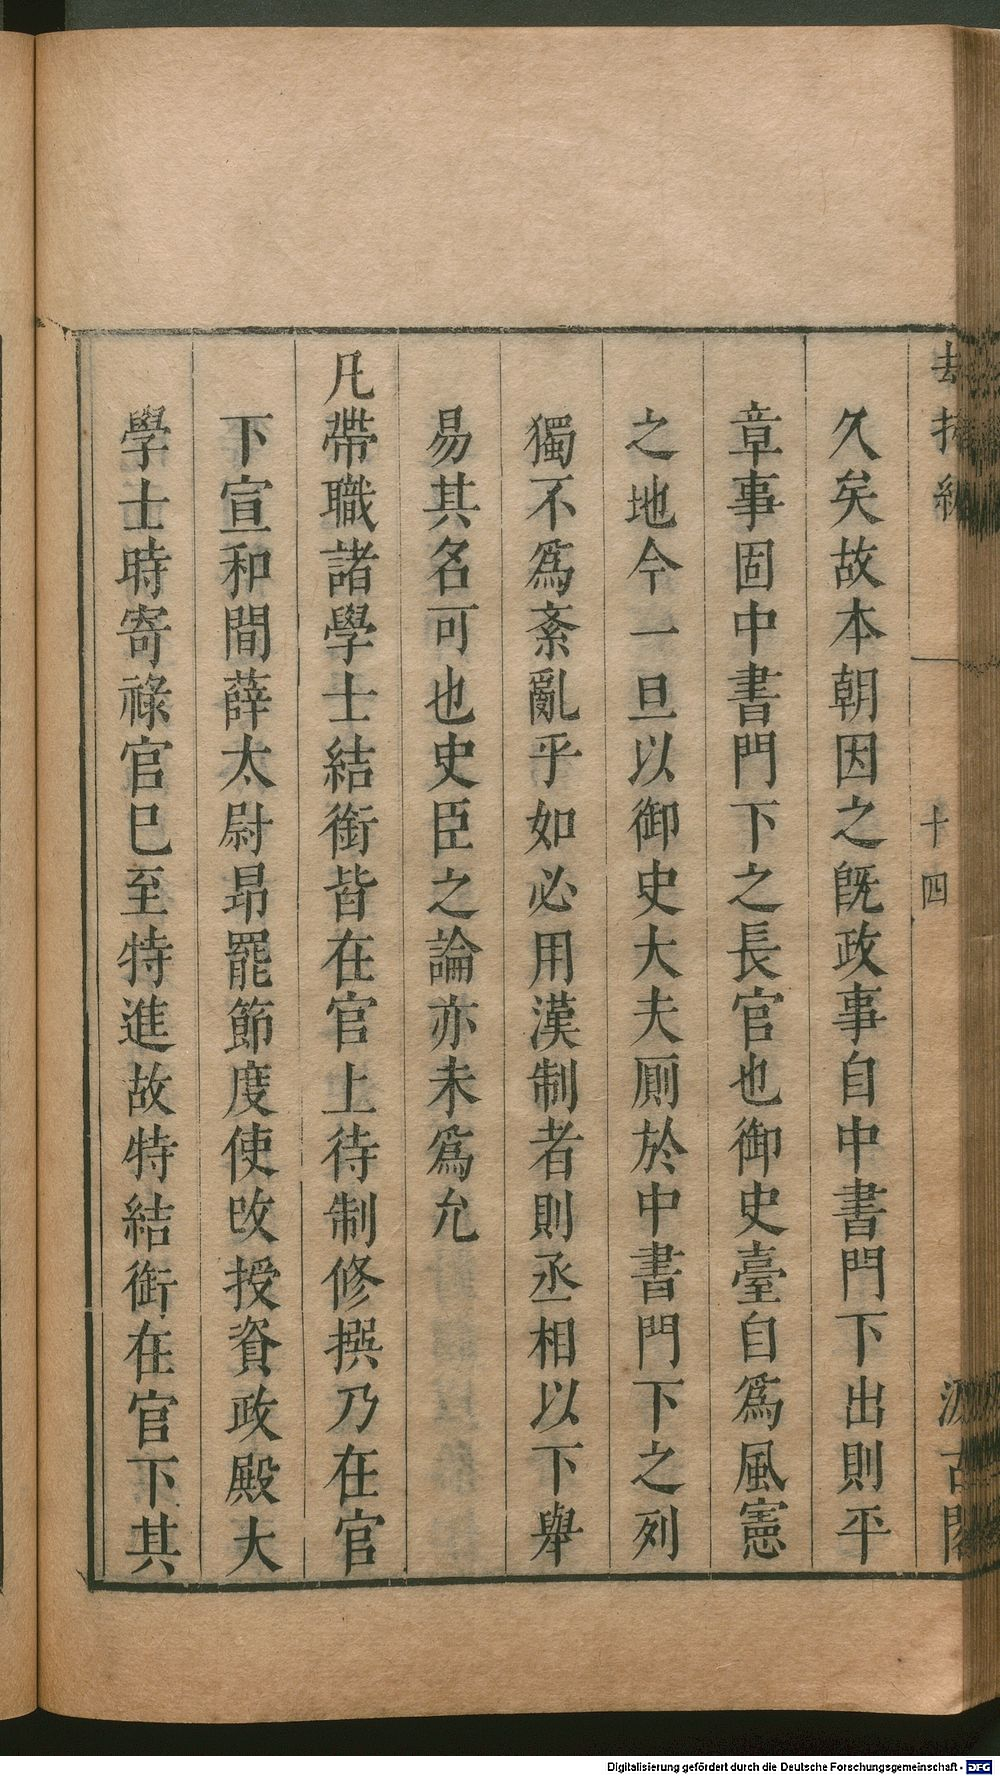 十四
久矣故本朝因之旣政事自中書門下出則平
章事固中書門下之長官也御史臺自爲風憲
之地今一旦以御史大夫厠於中書門下之列
獨不爲紊亂乎如必用漢制者則丞相以下舉
易其名可也史臣之論亦未爲允
凡帶職諸學士結銜皆在官上待制修撰乃在官
下宣和間薛太尉昂罷節度使改授資政殿大
學士時寄祿官已至特進故特結銜在官下其
Digitalisierung gefördert durch die Deutsche Forschungsgemeinschaft - DFG